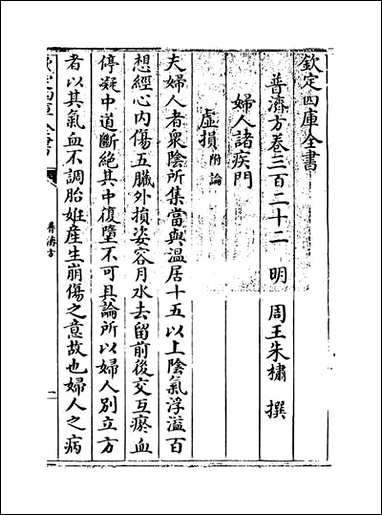 欽定四庫全書
普濟方卷三百二十二　明　周王朱橚　撰
婦人諸疾門
虛損附論
夫婦人者衆陰所集當與温居十五以上陰氣浮溢百
想經心内傷五臟外損姿容月水去留前後交互瘀血
停凝中道斷絶其中復墮不可具論所以婦人别立方
者以其氣血不調胎姙産生崩傷之意故也婦人之病
普濟方